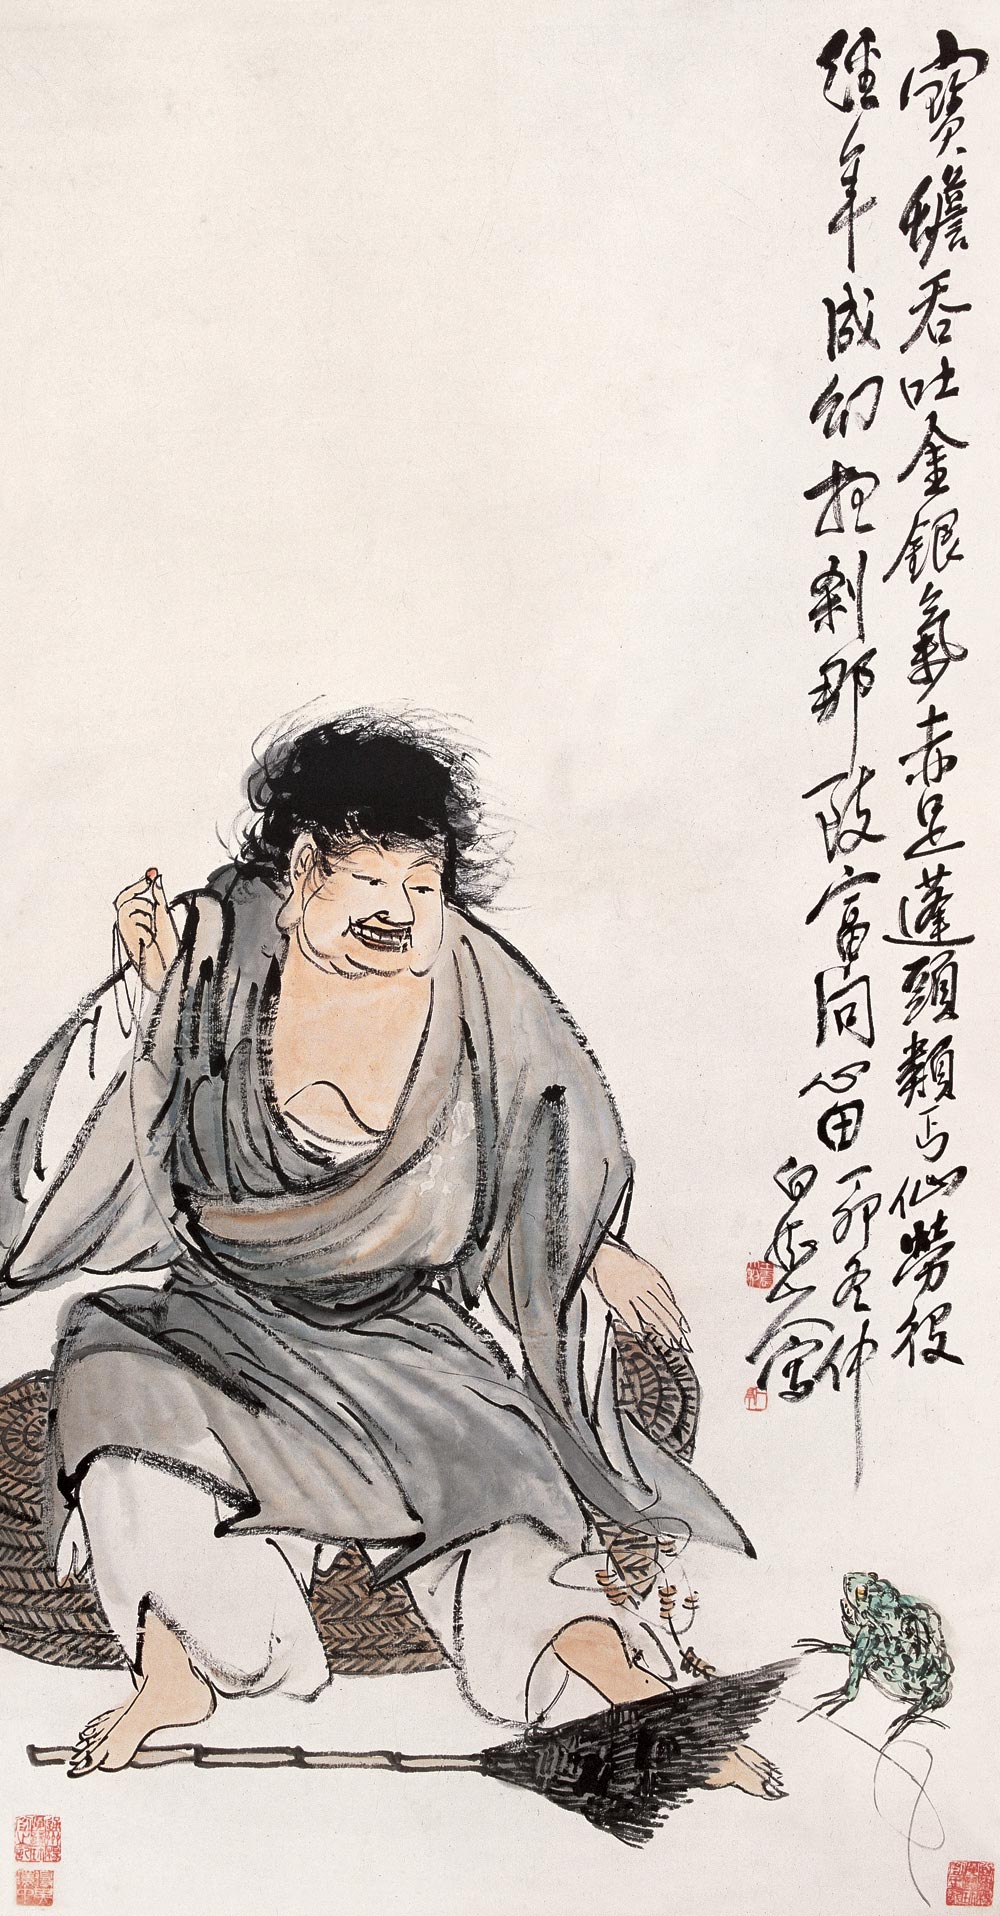 寶蟾吞吐金銀氣赤足蓬頭類丐仙勞役
經年成幻揑刹那致富同心田丁卯冬仲
白 寫